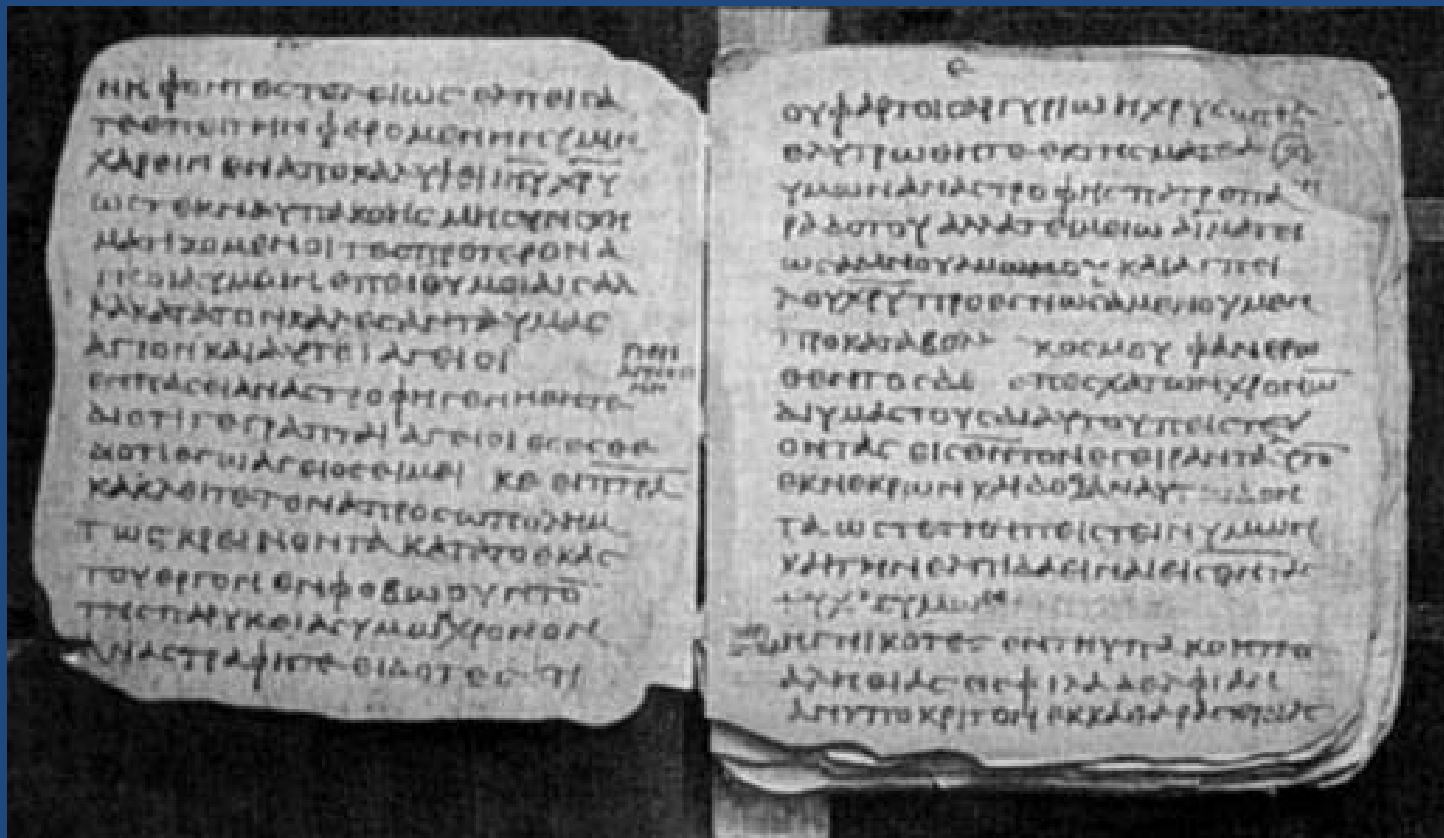 ΝΗΦΟΝΤΕϹΤΕΛΕΙΩϹΕΛΠΕΙϹΑ
ΤΕΕΠΙΤΗΝΦΕΡΟΜΕΝΗΝΥΜΙΝ
ΧΑΡΕΙΝΕΝΑΠΟΚΑΛΥΨΕΙΙΗΥΧΡΥ
ΩϹΤΕΚΝΑΥΠΑΚΟΗϹΜΗϹΥΝϹΧΗ
ΜΑΤΙΖΟΜΕΝΟΙΤΕϹΠΡΟΤΕΡΟΝΑ
ΓΝΟΙΑΥΜΩΝΕΠΟΙΘΥΜΟΙΑΙϹΑΛ
ΛΑΚΑΤΑΤΟΝΚΑΛΕϹΑΝΤΑΥΜΑϹ
ΑΓΙΟΝΚΑΙΑΥΤΕΙΑΓΕΙΟΙ
ΕΝΠΑϹΕΙΑΝΑϹΤΡΟΦΗΓΕΝΗΘΗΤΕ
ΔΙΟΤΙΓΕΓΡΑΠΤΑΙΑΓΕΙΟΙΕϹΕϹΘΕ
ΔΙΟΤΙΕΓΩΑΓΕΙΟϹΕΙΜΕΙ ΚΕΕΙΠΤΡΑ
ΚΑΛΕΙΤΕΤΟΝΑΠΡΟϹΩΠΟΛΗΜ
ΤΩϹΚΡΕΙΝΟΝΤΑΚΑΤΑΤΟΕΚΑϹ
ΤΟΥΕΡΓΟΝΕΝΦΟΒΩΟΥΝΤΟ
ΤΗϹΠΑΡΥΚΕΙΑϹΥΜΩΝΧΡΟΝΟΝ
ΑΝΑϹΤΡΑΦΗΤΕΕΙΔΟΤΕϹΤΙ
ΟΥΦΑΡΤΟΙϹΑΡΓΥΡΙΩΗΧΡΥϹΙΩ
ΕΛΥΤΡΩΘΗΤΕΕΚΤΗϹΜΑΤΕΑϹ
ΥΜΩΝΑΝΑϹΤΡΟΦΗϹΠΑΤΡΟΠΑ
ΡΑΔΟΤΟΥΑΛΛΑΤΕΙΜΕΙΩΑΙΜΑΤΕΙ
ΩϹΑΜΝΟΥΑΜΩΜΟΥΚΑΙΑϹΠΕΙ
ΛΟΥΧΡΥΠΡΟΕΓΝΩϹΑΜΕΝΟΥΜΕΝ
ΠΡΟΚΑΤΑΒΟΛΗϹ ΚΟϹΜΟΥΦΑΝΕΡΩ
ΘΕΝΤΟϹΔΕ ΕΠΕϹΧΑΤΩΝΧΡΟΝΩ
ΔΙΥΜΑϹΤΟΥϹΔΙΑΥΤΟΥΠΕΙϹΤΕΥ
ΟΝΤΑϹΕΙϹΘΝΤΟΝΕΓΕΙΡΑΝΤΑΑΥΤΟ
ΕΚΝΕΚΡΩΝΚΑΙΔΟΞΑΝΑΥΤΩΔΟΝ
ΤΑΩϹΤΕΤΗΝΠΕΙϹΤΕΙΝΥΜΩΝ
ΚΑΙΤΗΝΕΛΠΙΔΑΕΙΝΑΙΕΙϹΘΝΤΑϹ
ΨΥΧΑϹΥΜΩΝ
ΗΓΝΙΚΟΤΕϹΕΝΤΗΥΠΑΚΟΗΤΗϹ
ΑΛΗΘΙΑϹΕΙϹΦΙΛΑΔΕΛΦΙΑΝ
ΑΝΥΠΟΚΡΙΤΟΝΕΚΚΑΘΑΡΑϹΚΑΡΔΙΑϹ